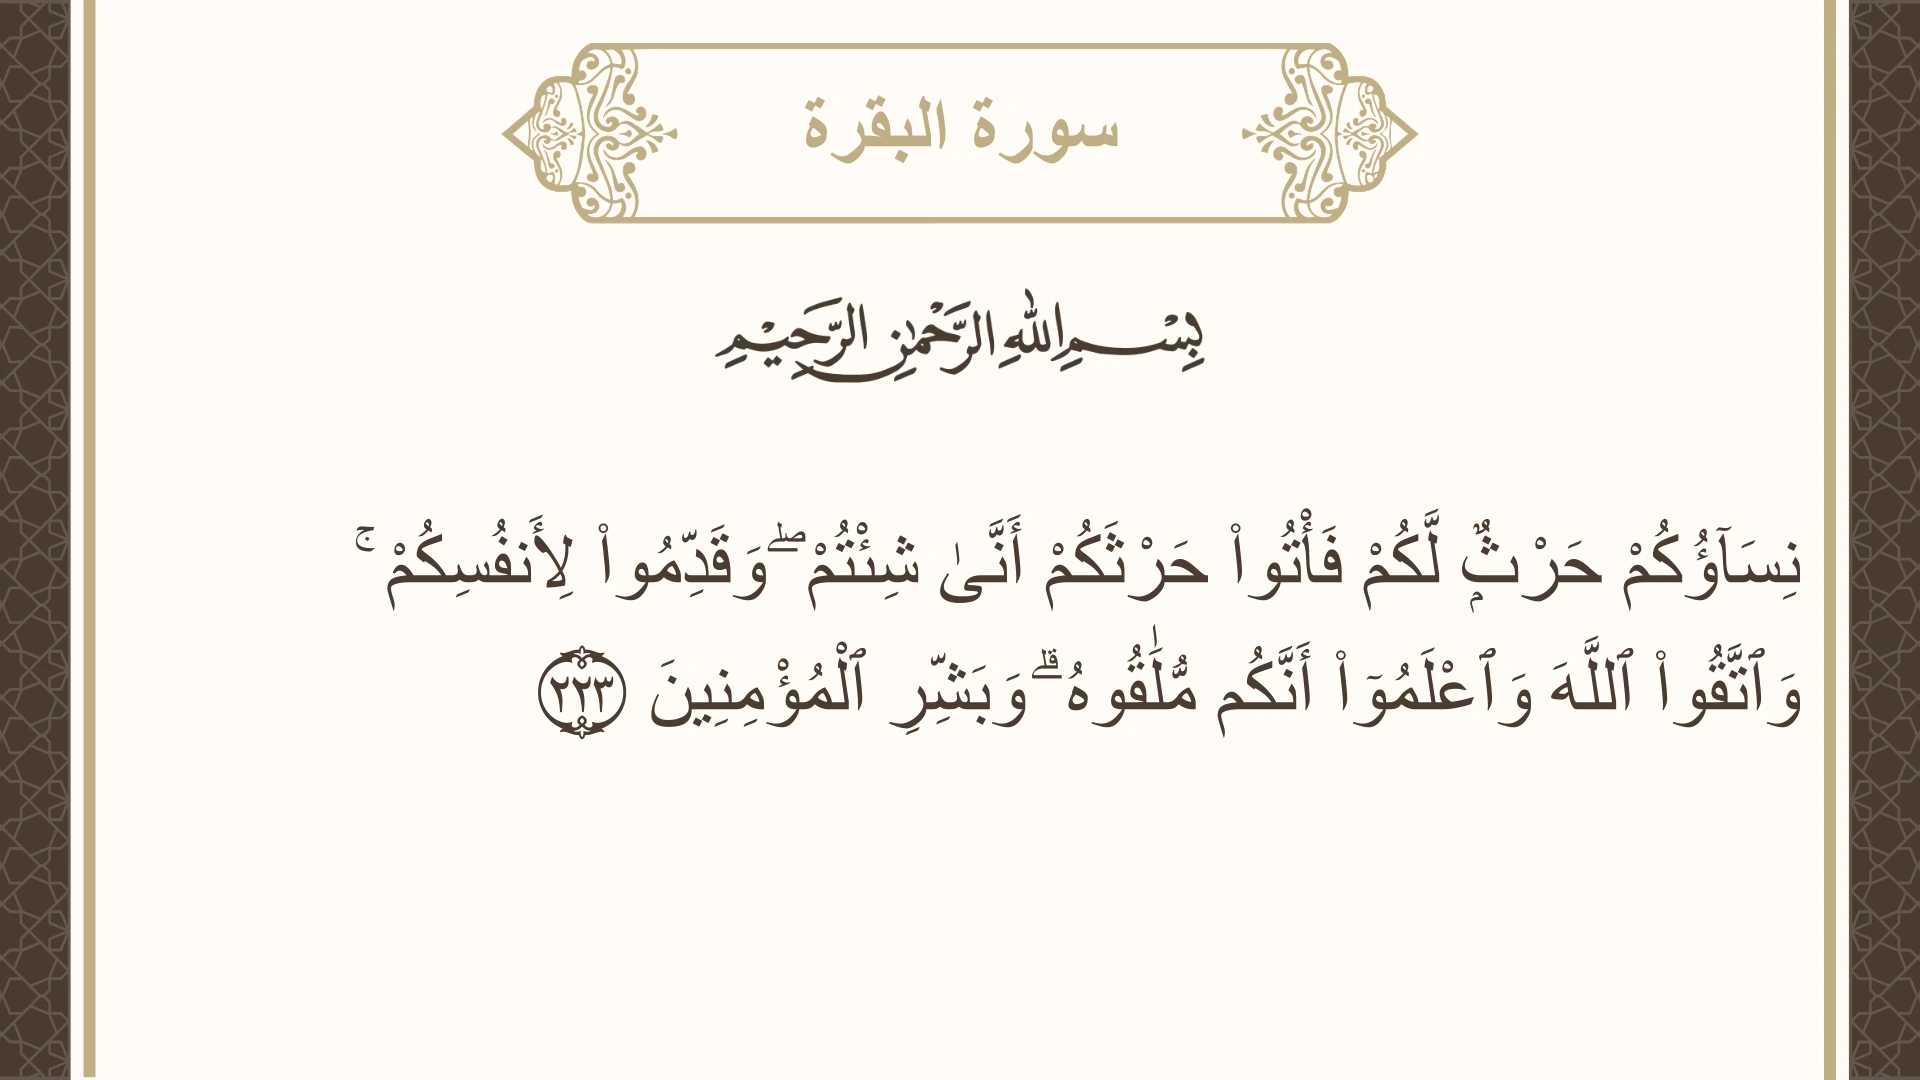 سورة البقرة
بِسْمِ اللهِ الرَّحْمٰنِ الرَّحِيْمِ
نِسَآؤُكُمْ حَرْثٌۭ لَّكُمْ فَأْتُوا۟ حَرْثَكُمْ أَنَّىٰ شِئْتُمْ ۖ وَقَدِّمُوا۟ لِأَنفُسِكُمْ ۚ
وَٱتَّقُوا۟ ٱللَّهَ وَٱعْلَمُوٓا۟ أَنَّكُم مُّلَـٰقُوهُ ۗ وَبَشِّرِ ٱلْمُؤْمِنِينَ ٢٢٣